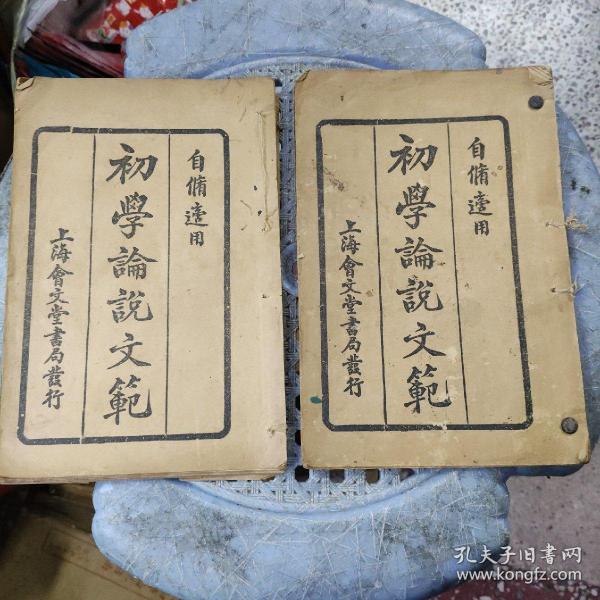 自脩適用
初學論說文範
上海會文堂書局發行
自脩適用
初學論說文範
上海會文堂書局發行
孔夫子旧書网
www.kongfz.com